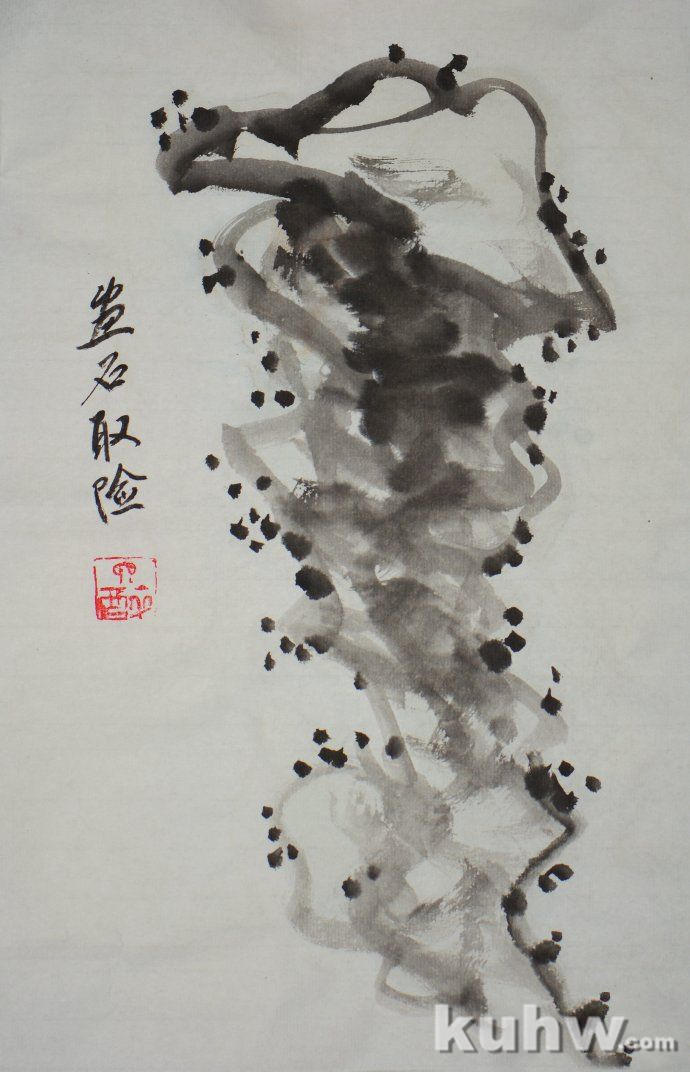 畫石取险
kuhw.com